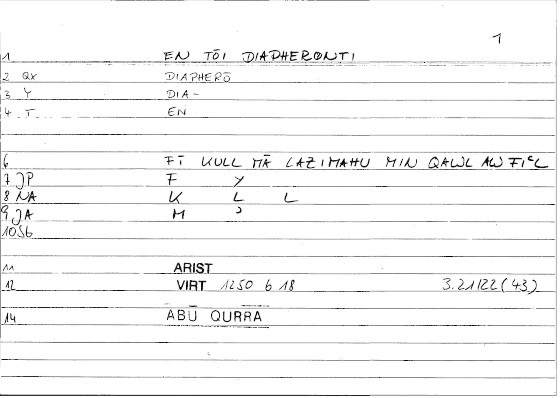 1
1 EN TŌI DIAPHERONTI
2 QX DIAPHERŌ
3 Y DIA-
4 T EN
6 FĪ KULL MĀ LAZIMAHU MIN QAWL AW FIʿL
7 JP F Y
8 NA K L L
9 JA M ʾ
10 SG
11 ARIST
12 VIRT 1250 b 18 3.21/22 (43)
14 ABŪ QURRA